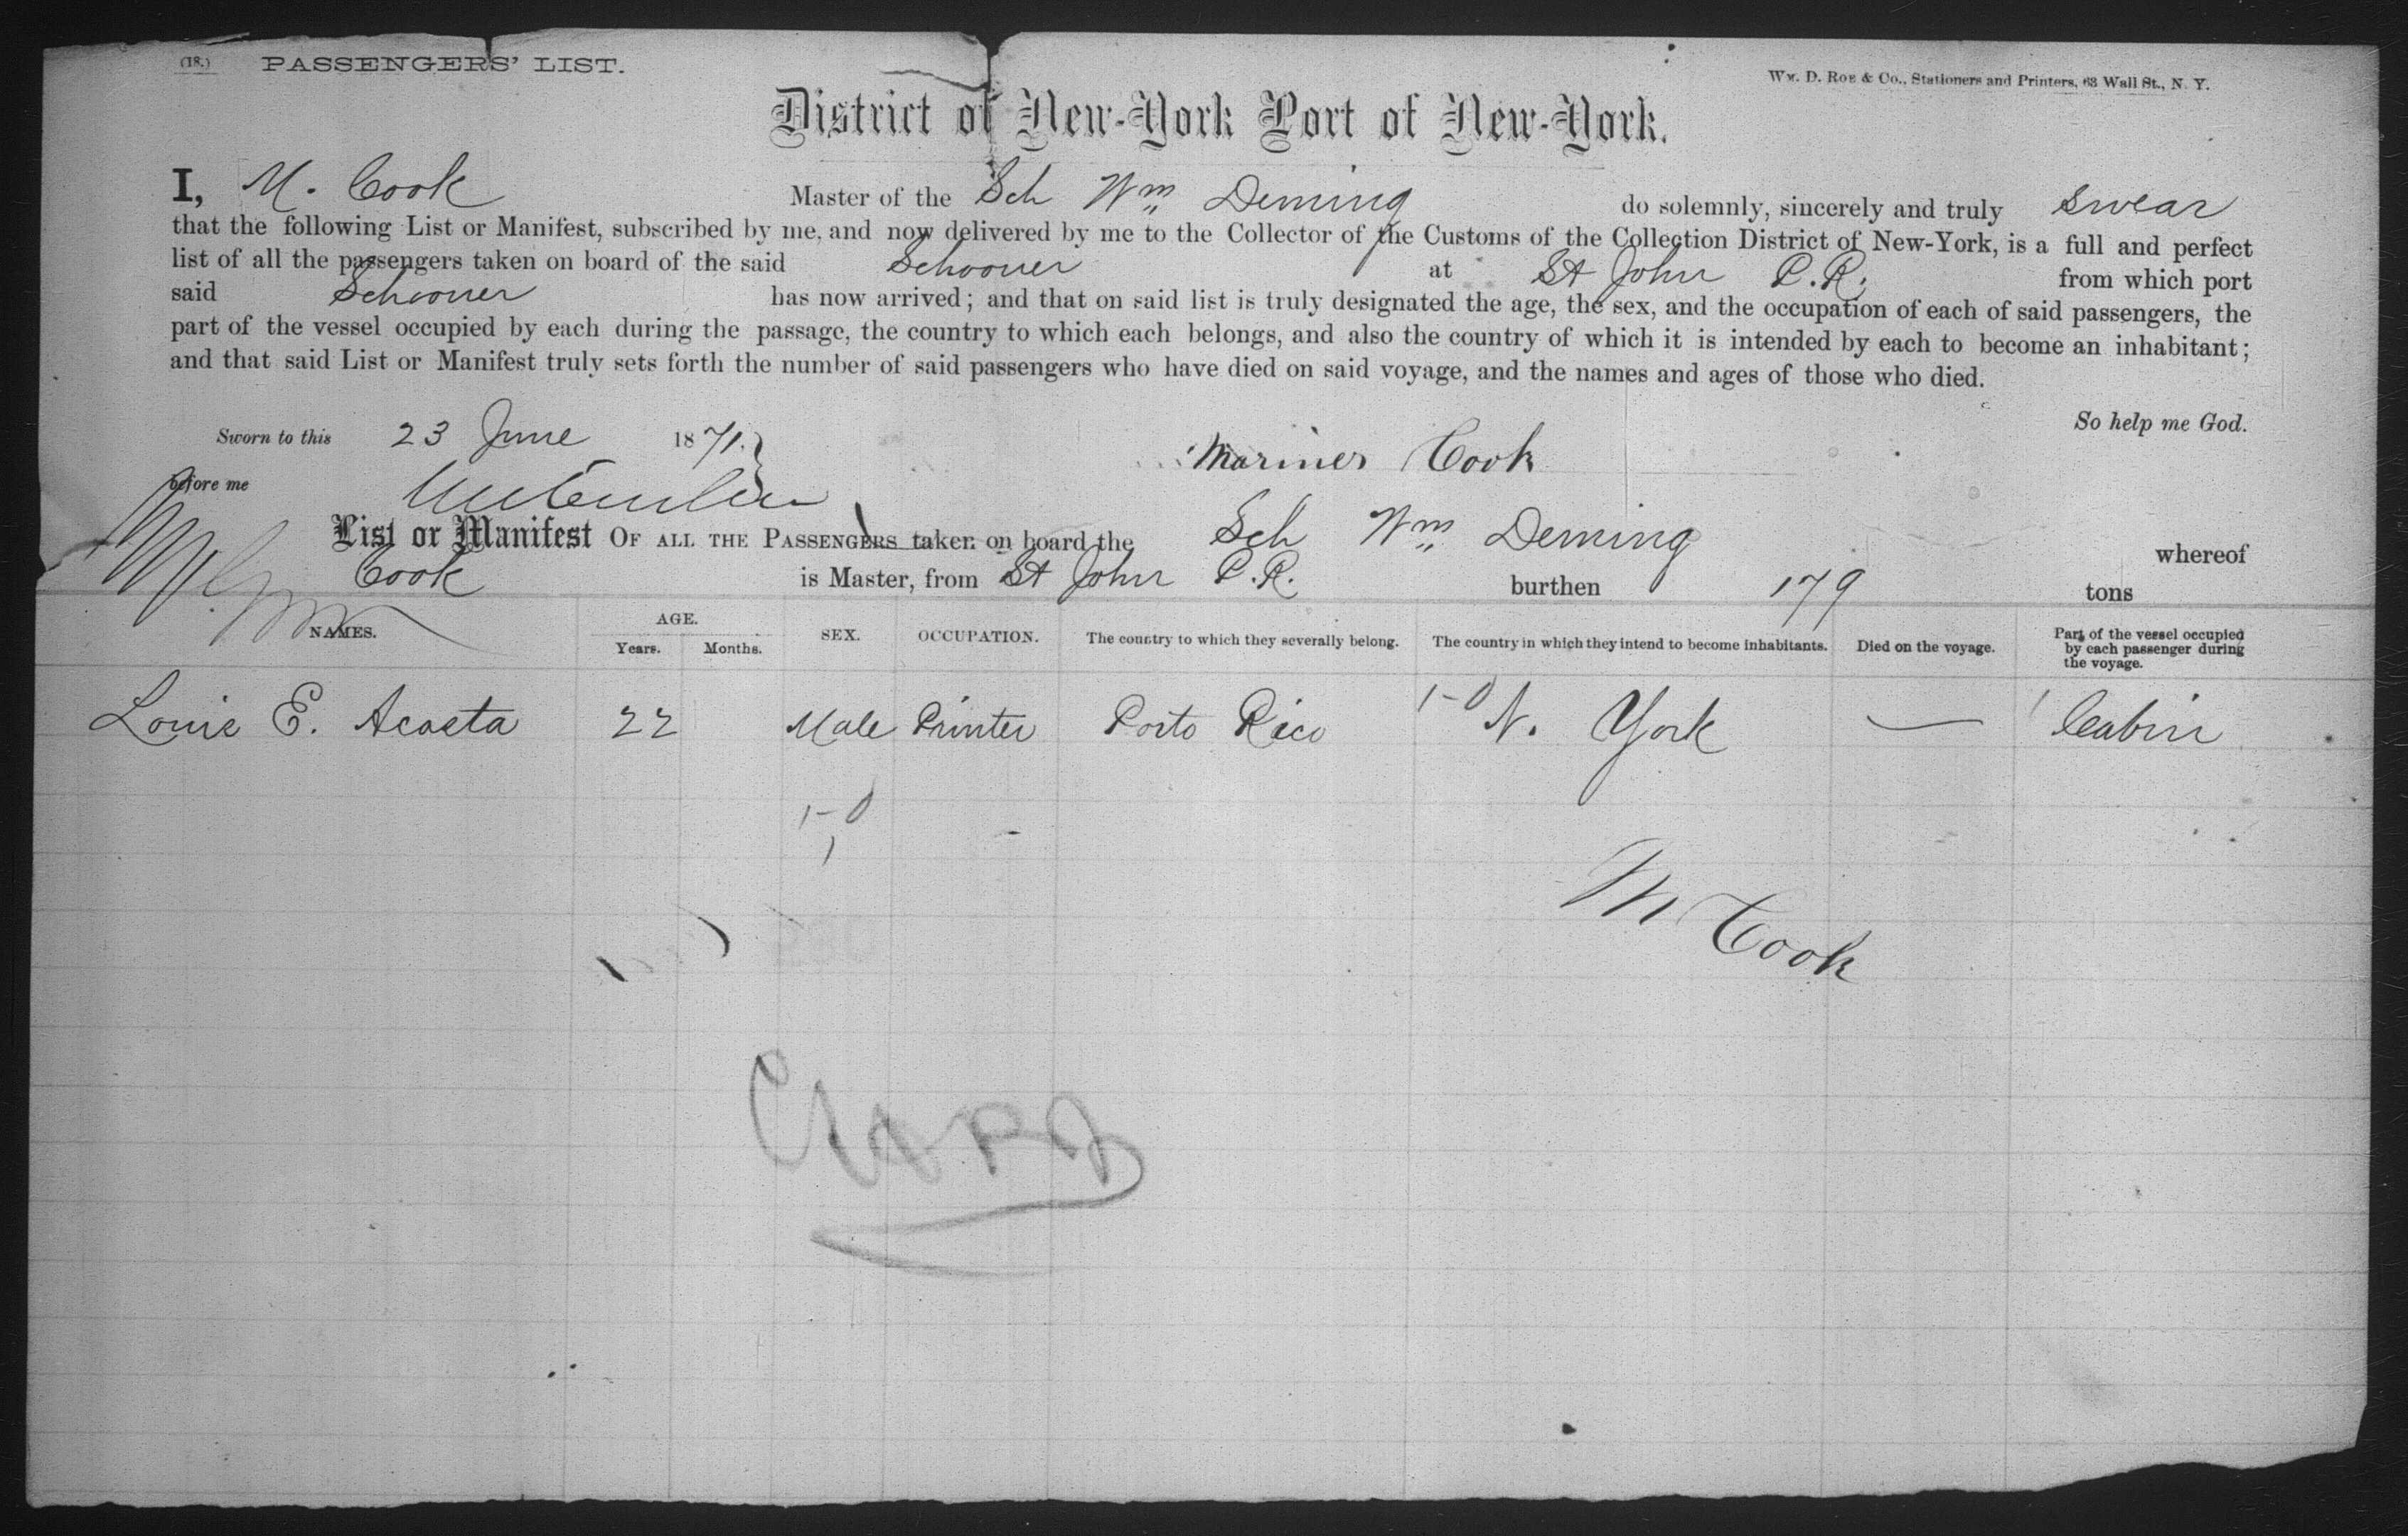 (18.) PASSENGERS' LIST.
Wm. D. Roe & Co., Stationers and Printers, 63 Wall St., N. Y.
District of New-York Port of New-York.
I, M. Cook Master of the Sch Wm Deming do solemnly, sincerely and truly swear
that the following List or Manifest, subscribed by me, and now delivered by me to the Collector of the Customs of the Collection District of New-York, is a full and perfect
list of all the passengers taken on board of the said Schooner at St John P.R. from which port
said Schooner has now arrived; and that on said list is truly designated the age, the sex, and the occupation of each of said passengers, the
part of the vessel occupied by each during the passage, the country to which each belongs, and also the country of which it is intended by each to become an inhabitant;
and that said List or Manifest truly sets forth the number of said passengers who have died on said voyage, and the names and ages of those who died.
So help me God.
Sworn to this 23 June 1871.
Mariner Cook
before me
List or Manifest OF ALL THE PASSENGERS taken on board the Sch Wm Deming whereof
Cook is Master, from St John P.R. burthen 179 tons
NAMES. AGE. Years. Months. SEX. OCCUPATION. The country to which they severally belong. The country in which they intend to become inhabitants. Died on the voyage. Part of the vessel occupied by each passenger during the voyage.
Louis E. Acosta 22 Male Printer Porto Rico 1-0 N. York — Cabin
1-0
1
M Cook